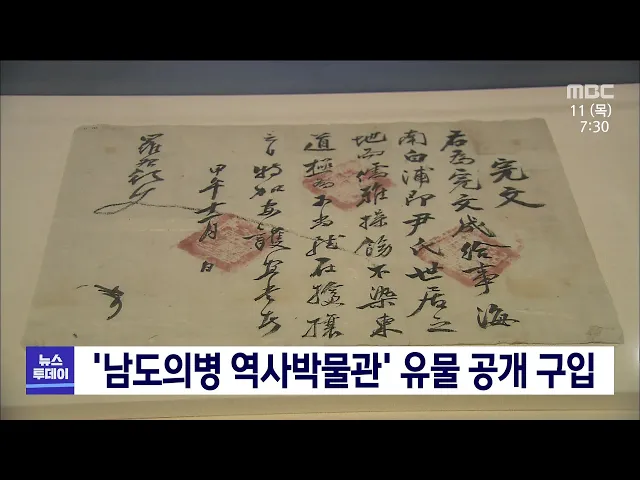 MBC
11 (목)
7:30
完文
右爲完文成給事 海
南白浦即尹氏世居之
地而儒雅操飭不染東
道極爲 在擾攘
特加安護宜
甲午十二月 日
뉴스
투데이
'남도의병 역사박물관' 유물 공개 구입